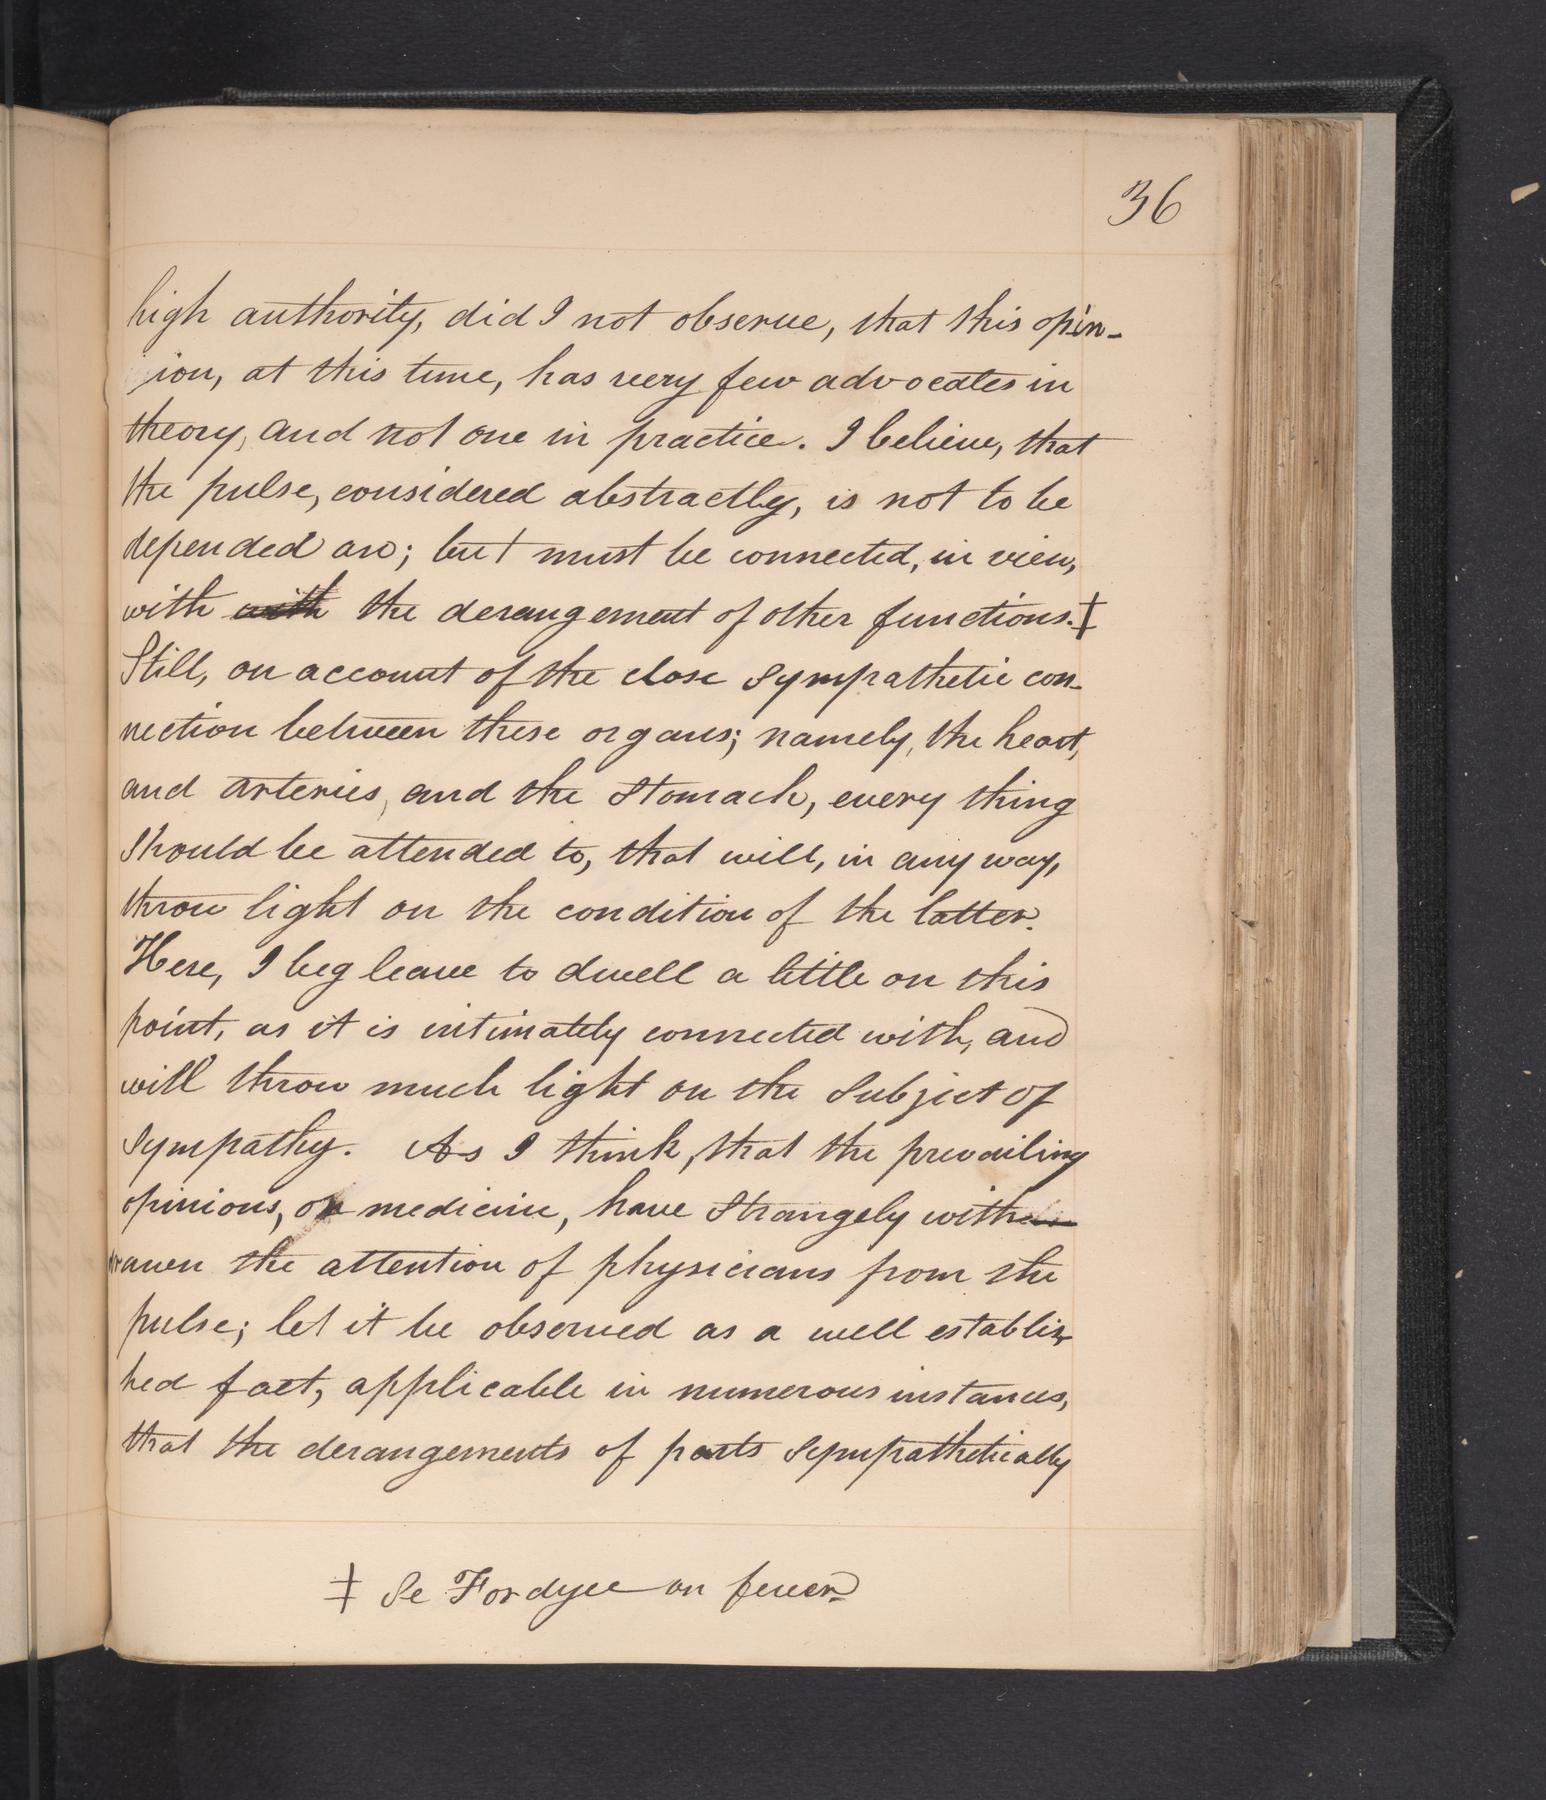 36
high authority, did I not observe, that this opin-
ion, at this time, has very few advocates in
theory, and not one in practice. I believe, that
the pulse, considered abstractly, is not to be
depended on; but must be connected, in view,
with with the derangement of other functions.‡
Still, on account of the close sympathetic con-
nection between these organs; namely, the heart,
and arteries, and the stomach, every thing
should be attended to, that will, in any way,
throw light on the condition of the latter.
Here, I beg leave to dwell a little on this
point, as it is intimately connected with, and
will throw much light on the subject of
sympathy. As I think, that the prevailing
opinions, on medicine, have strangely with
drawn the attention of physicians from the
pulse; let it be observed as a well establis
hed fact, applicable in numerous instances,
that the derangements of parts sympathetically
‡ Se Fordyce on fever